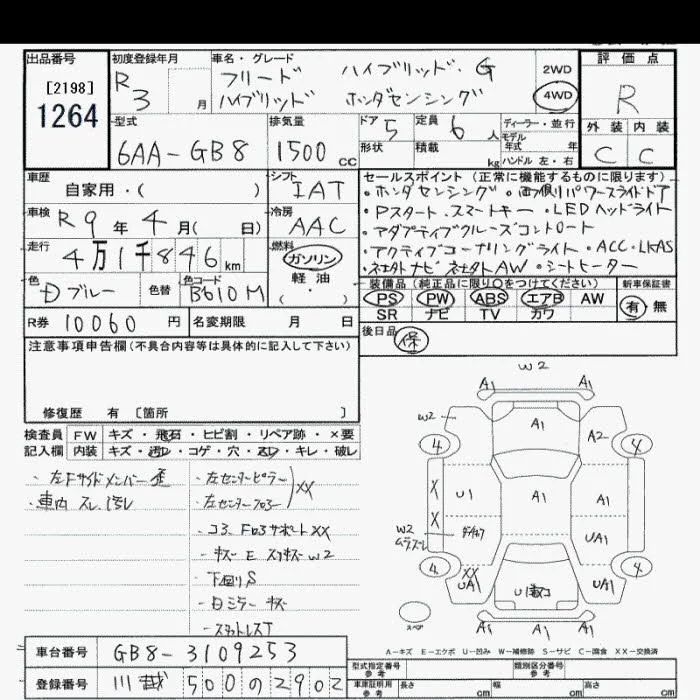 出品番号
[2198]
1264
初度登録年月
R 3 月
車名・グレード
フリード ハイブリッド・G
ハイブリッド ホンダセンシング
2WD
4WD
評価点
R
外装 内装
C C
型式
6AA-GB8
排気量
1500 cc
ドア 5
定員 6 人
形状
積載 kg
ディーラー・並行
モデル年式 年
ハンドル 左・右
車歴
自家用・( )
シフト
IAT
車検
R9年4月( 日)
冷房
AAC
走行
4万1千846km
燃料
ガソリン
軽油
( ・ )
色
ブルー
色替
色コード
B610M
R券 10060 円
名変期限 月 日
セールスポイント (正常に機能するものに限ります)
・ホンダセンシング ・両側パワースライドドア
・Pスタート.スマートキー ・LEDヘッドライト
・アダプティブクルーズコントロート
・アクティブコーナリングライト・ACC・LKAS
・社外ナビ 社外AW ・シートヒーター
装備品 (純正品に限り○をつけてください)
新車保証書
PS PW ABS エアB AW
SR ナビ TV カワ
有・無
後日品 保
注意事項申告欄(不具合内容等は具体的に記入して下さい)
修復歴 有 〔箇所 〕
検査員記入欄
FW キズ・飛石・ヒビ割・リペア跡・×要
内装 キズ・汚レ・コゲ・穴・スレ・キレ・破レ
・左Fサイドメンバー歪
・車内 スレ、汚レ
・左センターピラー
・左センターフロアー
XX
・コア Fロアサポート XX
・キズ E スリキズ W2
・下回り S
・ミラー キズ
・スタットレス T
W2
A1 A1
W2
A1
A2
4 4
X
X
U1
A1
A1
W2
UA1
4 4
XX
UA1
UA1
U
A1 A1 A1
スペア
A-キズ E-エクボ U-凹み W-補修跡 S-サビ C-腐食 XX-交換済
車台番号 GB8-3109253
登録番号 川越 500 の 2902
型式指定番号
参考
類別区分番号
参考
車庫証明用
参考
長さ cm
幅 cm
高さ cm